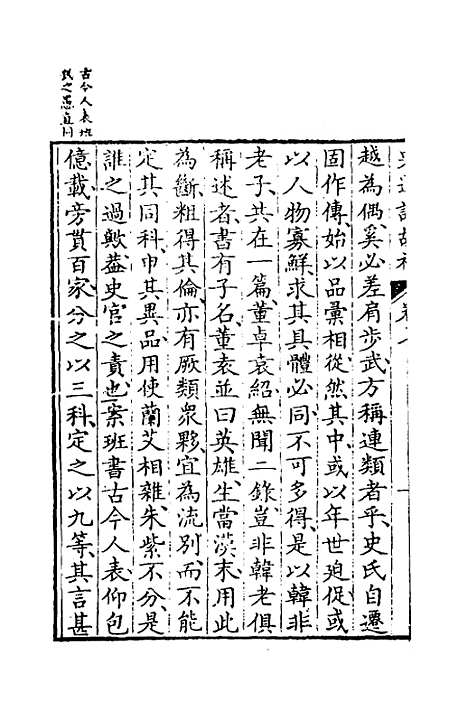 越為偶奚必差肩步武方稱連類者乎史氏自遷
固作傳始以品彙相從然其中或以年世迫促或
以人物寡鮮求其具體必同不可多得是以韓非
老子共在一篇董卓袁紹無聞二錄豈非韓老俱
稱述者書有子名董袁並曰英雄生當漢末用此
為斷粗得其倫亦有厥類眾夥宜為流別而不能
定其同科申其異品用使蘭艾相雜朱紫不分是
誰之過歟蓋史官之責也案班書古今人表仰包
億載旁貫百家分之以三科定之以九等其言甚
古今人表